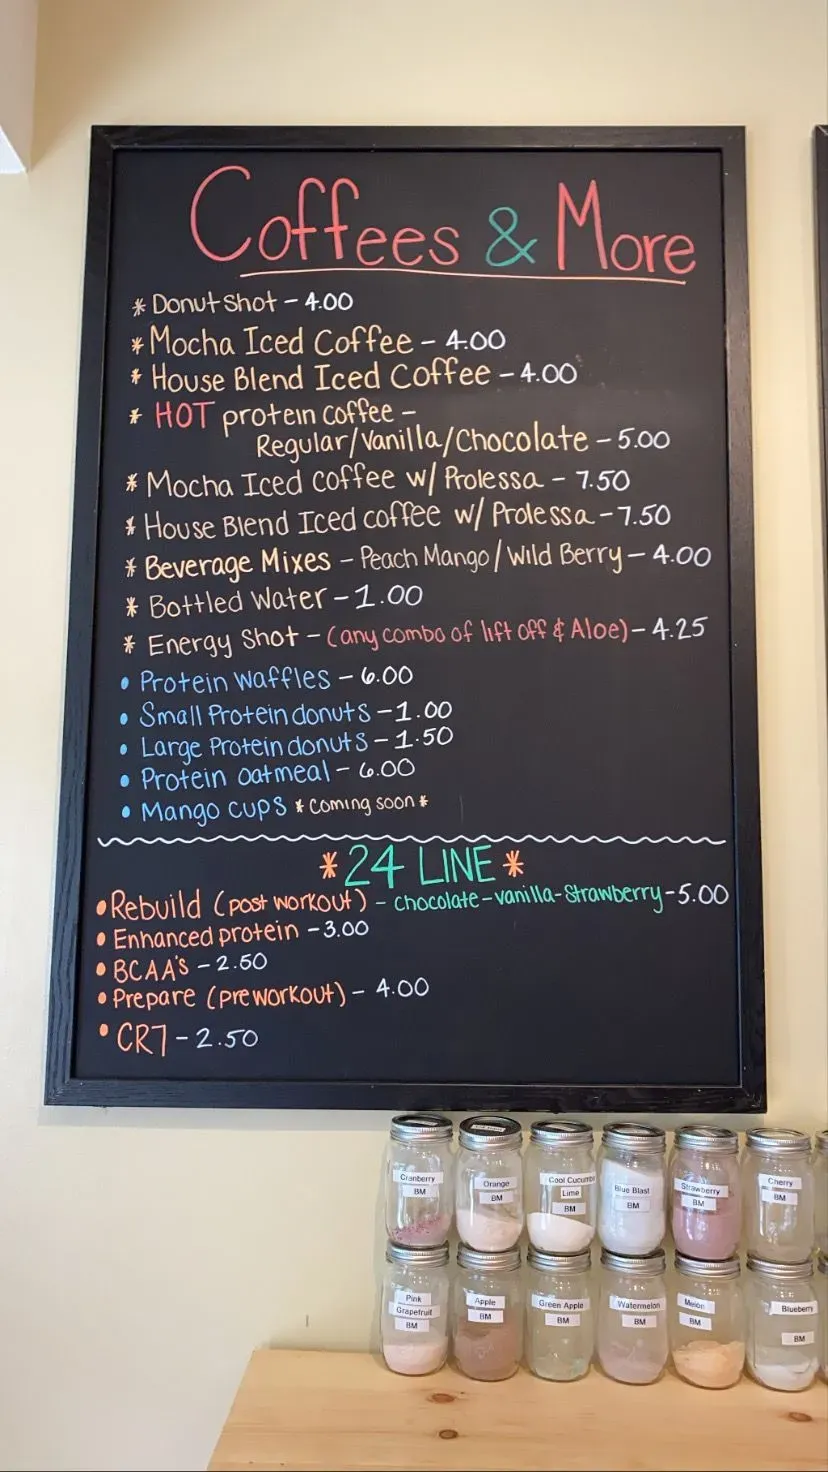 Coffees & More
* Donut Shot - 4.00
* Mocha Iced Coffee - 4.00
* House Blend Iced Coffee - 4.00
* HOT protein coffee -
Regular/Vanilla/Chocolate - 5.00
* Mocha Iced coffee w/ Prolessa - 7.50
* House Blend Iced coffee w/ Prolessa - 7.50
* Beverage Mixes - Peach Mango/Wild Berry - 4.00
* Bottled Water - 1.00
* Energy Shot - (any combo of lift off & Aloe) - 4.25
• Protein Waffles - 6.00
• Small Protein donuts - 1.00
• Large Protein donuts - 1.50
• Protein oatmeal - 6.00
• Mango cups *coming soon*
*24 LINE*
• Rebuild (post workout) - chocolate-vanilla-Strawberry - 5.00
• Enhanced protein - 3.00
• BCAA's - 2.50
• Prepare (preworkout) - 4.00
• CR7 - 2.50
Cranberry
BM
Orange
BM
Cool Cucumbe
Lime
BM
Blue Blast
BM
Strawberry
BM
Cherry
BM
Pink
Grapefruit
BM
Apple
BM
Green Apple
BM
Watermelon
BM
Melon
BM
Blueberry
BM